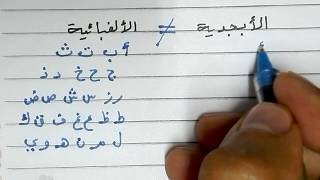 الأبجدية ≠ الألفبائية
أ ب ت ث
ج ح خ د ذ
ر ز س ش ص ض
ط ظ ع غ ف ق ك
ل م ن هـ و ي